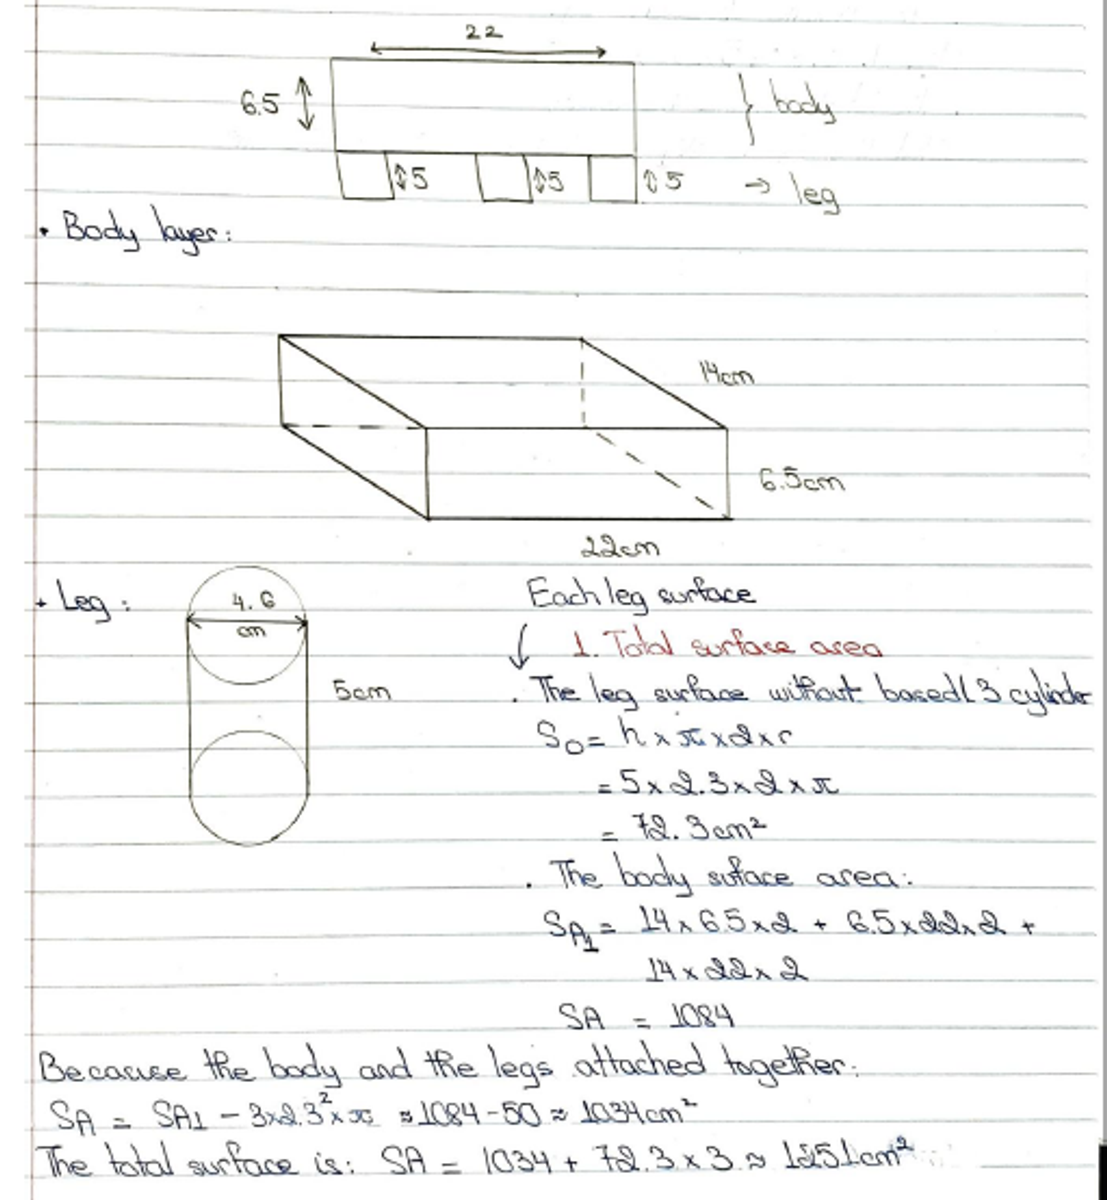 22
6.5
} body
5
5
5 → leg
• Body layer:
14cm
6.5cm
22cm
+ Leg :
4.6
cm
5cm
Each leg surface
1. Total surface area
. The leg surface without based (3 cylinder
S₀ = h × π × 2 × r
= 5 × 2.3 × 2 × π
= 72.3 cm²
. The body suface area:
SA₁ = 14 × 6.5 × 2 + 6.5 × 22 × 2 +
14 × 22 × 2
SA = 1084
Because the body and the legs attached together:
SA = SA1 - 3×2.3²×π ≈ 1084 - 50 ≈ 1034 cm²
The total surface is: SA = 1034 + 72.3 × 3 ≈ 1251 cm²